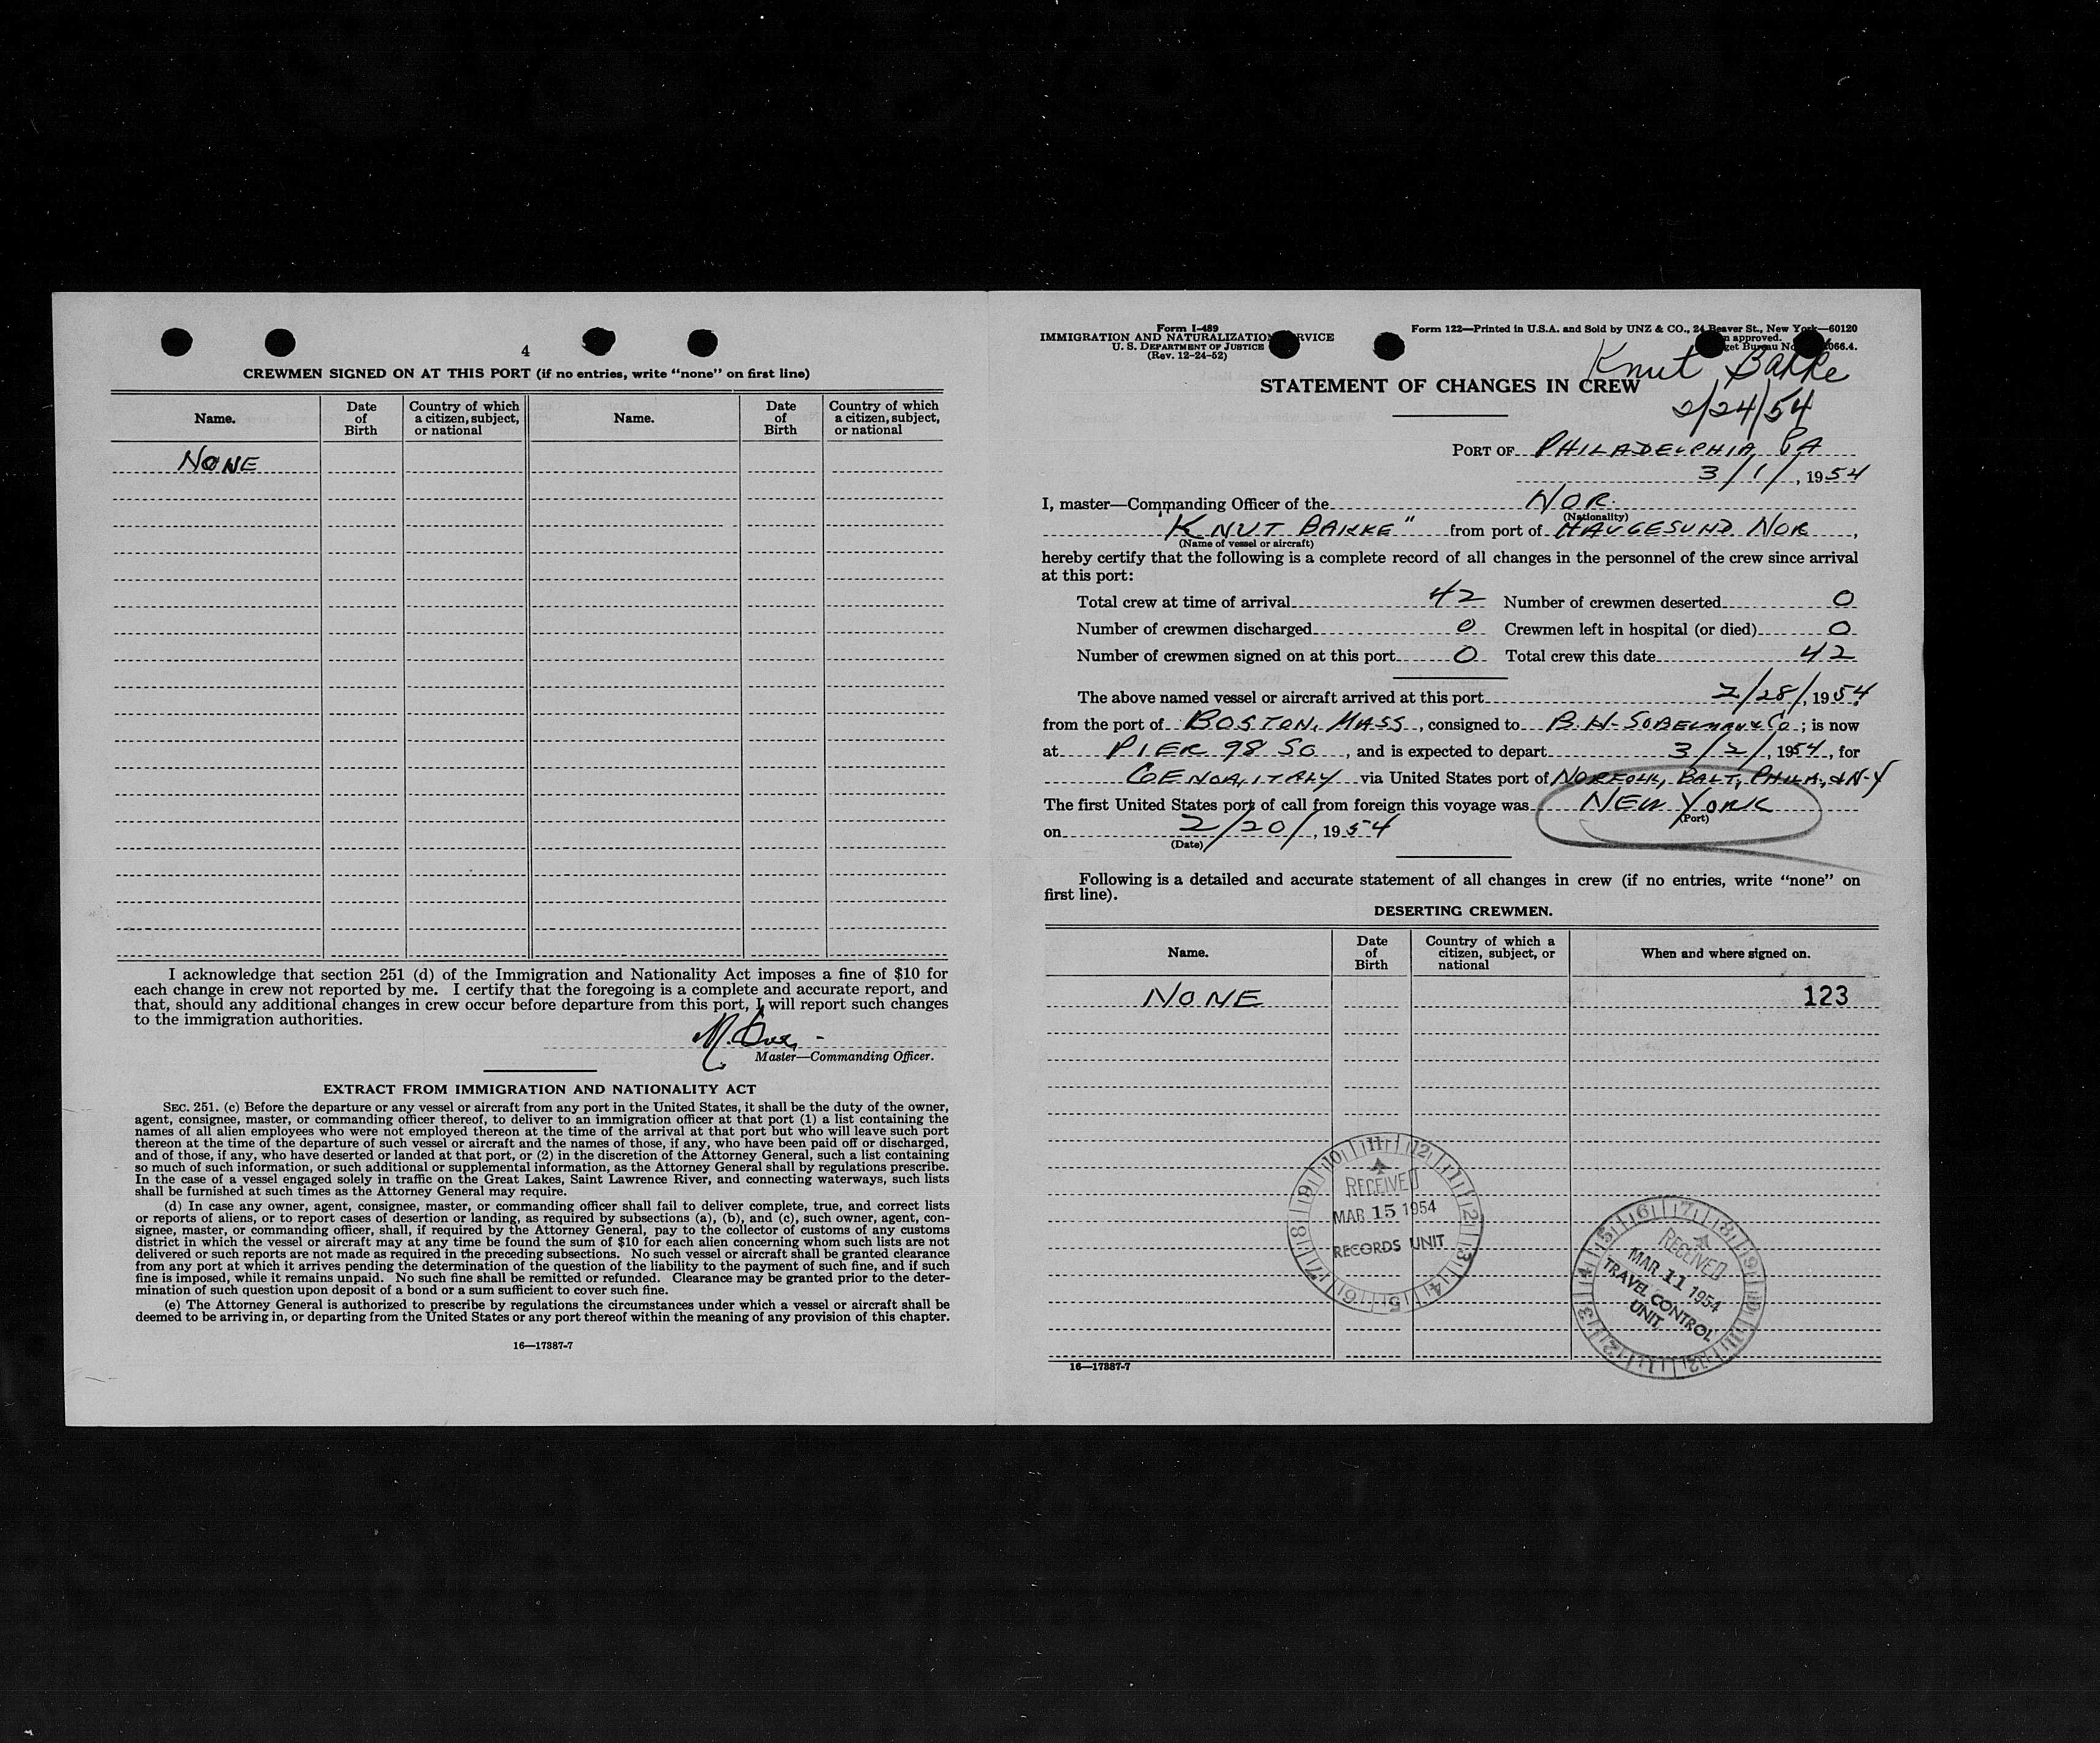 4
CREWMEN SIGNED ON AT THIS PORT (if no entries, write “none” on first line)
Name.
Date of Birth
Country of which a citizen, subject, or national
Name.
Date of Birth
Country of which a citizen, subject, or national
NONE
I acknowledge that section 251 (d) of the Immigration and Nationality Act imposes a fine of $10 for
each change in crew not reported by me. I certify that the foregoing is a complete and accurate report, and
that, should any additional changes in crew occur before departure from this port, I will report such changes
to the immigration authorities.
Master—Commanding Officer.
EXTRACT FROM IMMIGRATION AND NATIONALITY ACT
SEC. 251. (c) Before the departure or any vessel or aircraft from any port in the United States, it shall be the duty of the owner,
agent, consignee, master, or commanding officer thereof, to deliver to an immigration officer at that port (1) a list containing the
names of all alien employees who were not employed thereon at the time of the arrival at that port but who will leave such port
thereon at the time of the departure of such vessel or aircraft and the names of those, if any, who have been paid off or discharged,
and of those, if any, who have deserted or landed at that port, or (2) in the discretion of the Attorney General, such a list containing
so much of such information, or such additional or supplemental information, as the Attorney General shall by regulations prescribe.
In the case of a vessel engaged solely in traffic on the Great Lakes, Saint Lawrence River, and connecting waterways, such lists
shall be furnished at such times as the Attorney General may require.
(d) In case any owner, agent, consignee, master, or commanding officer shall fail to deliver complete, true, and correct lists
or reports of aliens, or to report cases of desertion or landing, as required by subsections (a), (b), and (c), such owner, agent, con-
signee, master, or commanding officer, shall, if required by the Attorney General, pay to the collector of customs of any customs
district in which the vessel or aircraft may at any time be found the sum of $10 for each alien concerning whom such lists are not
delivered or such reports are not made as required in the preceding subsections. No such vessel or aircraft shall be granted clearance
from any port at which it arrives pending the determination of the question of the liability to the payment of such fine, and if such
fine is imposed, while it remains unpaid. No such fine shall be remitted or refunded. Clearance may be granted prior to the deter-
mination of such question upon deposit of a bond or a sum sufficient to cover such fine.
(e) The Attorney General is authorized to prescribe by regulations the circumstances under which a vessel or aircraft shall be
deemed to be arriving in, or departing from the United States or any port thereof within the meaning of any provision of this chapter.
16—17387-7
Form I-489
IMMIGRATION AND NATURALIZATION SERVICE
U. S. DEPARTMENT OF JUSTICE
(Rev. 12-24-52)
Form 122—Printed in U.S.A. and Sold by UNZ & CO., 24 Beaver St., New York—60120
approved.
Knut Bakke
STATEMENT OF CHANGES IN CREW
2/24/54
PORT OF PHILADELPHIA, PA
3/1/, 1954
I, master—Commanding Officer of the NOR.
(Nationality)
"KNUT BAKKE" from port of HAUGESUND. NOR,
(Name of vessel or aircraft)
hereby certify that the following is a complete record of all changes in the personnel of the crew since arrival
at this port:
Total crew at time of arrival 42 Number of crewmen deserted 0
Number of crewmen discharged 0 Crewmen left in hospital (or died) 0
Number of crewmen signed on at this port 0 Total crew this date 42
The above named vessel or aircraft arrived at this port 2/28/, 1954
from the port of BOSTON, MASS, consigned to B. H. SOBELMAN & Co; is now
at PIER 98 SO, and is expected to depart 3/2/, 1954, for
GENOA, ITALY via United States port of NORFOLK, BALT, PHILA, & N-Y
The first United States port of call from foreign this voyage was NEW YORK
(Port)
on 2/20/, 1954
(Date)
Following is a detailed and accurate statement of all changes in crew (if no entries, write “none” on
first line).
DESERTING CREWMEN.
Name.
Date of Birth
Country of which a citizen, subject, or national
When and where signed on.
NONE 123
RECEIVED
MAR 15 1954
RECORDS UNIT
RECEIVED
MAR 11 1954
TRAVEL CONTROL
UNIT
16—17387-7